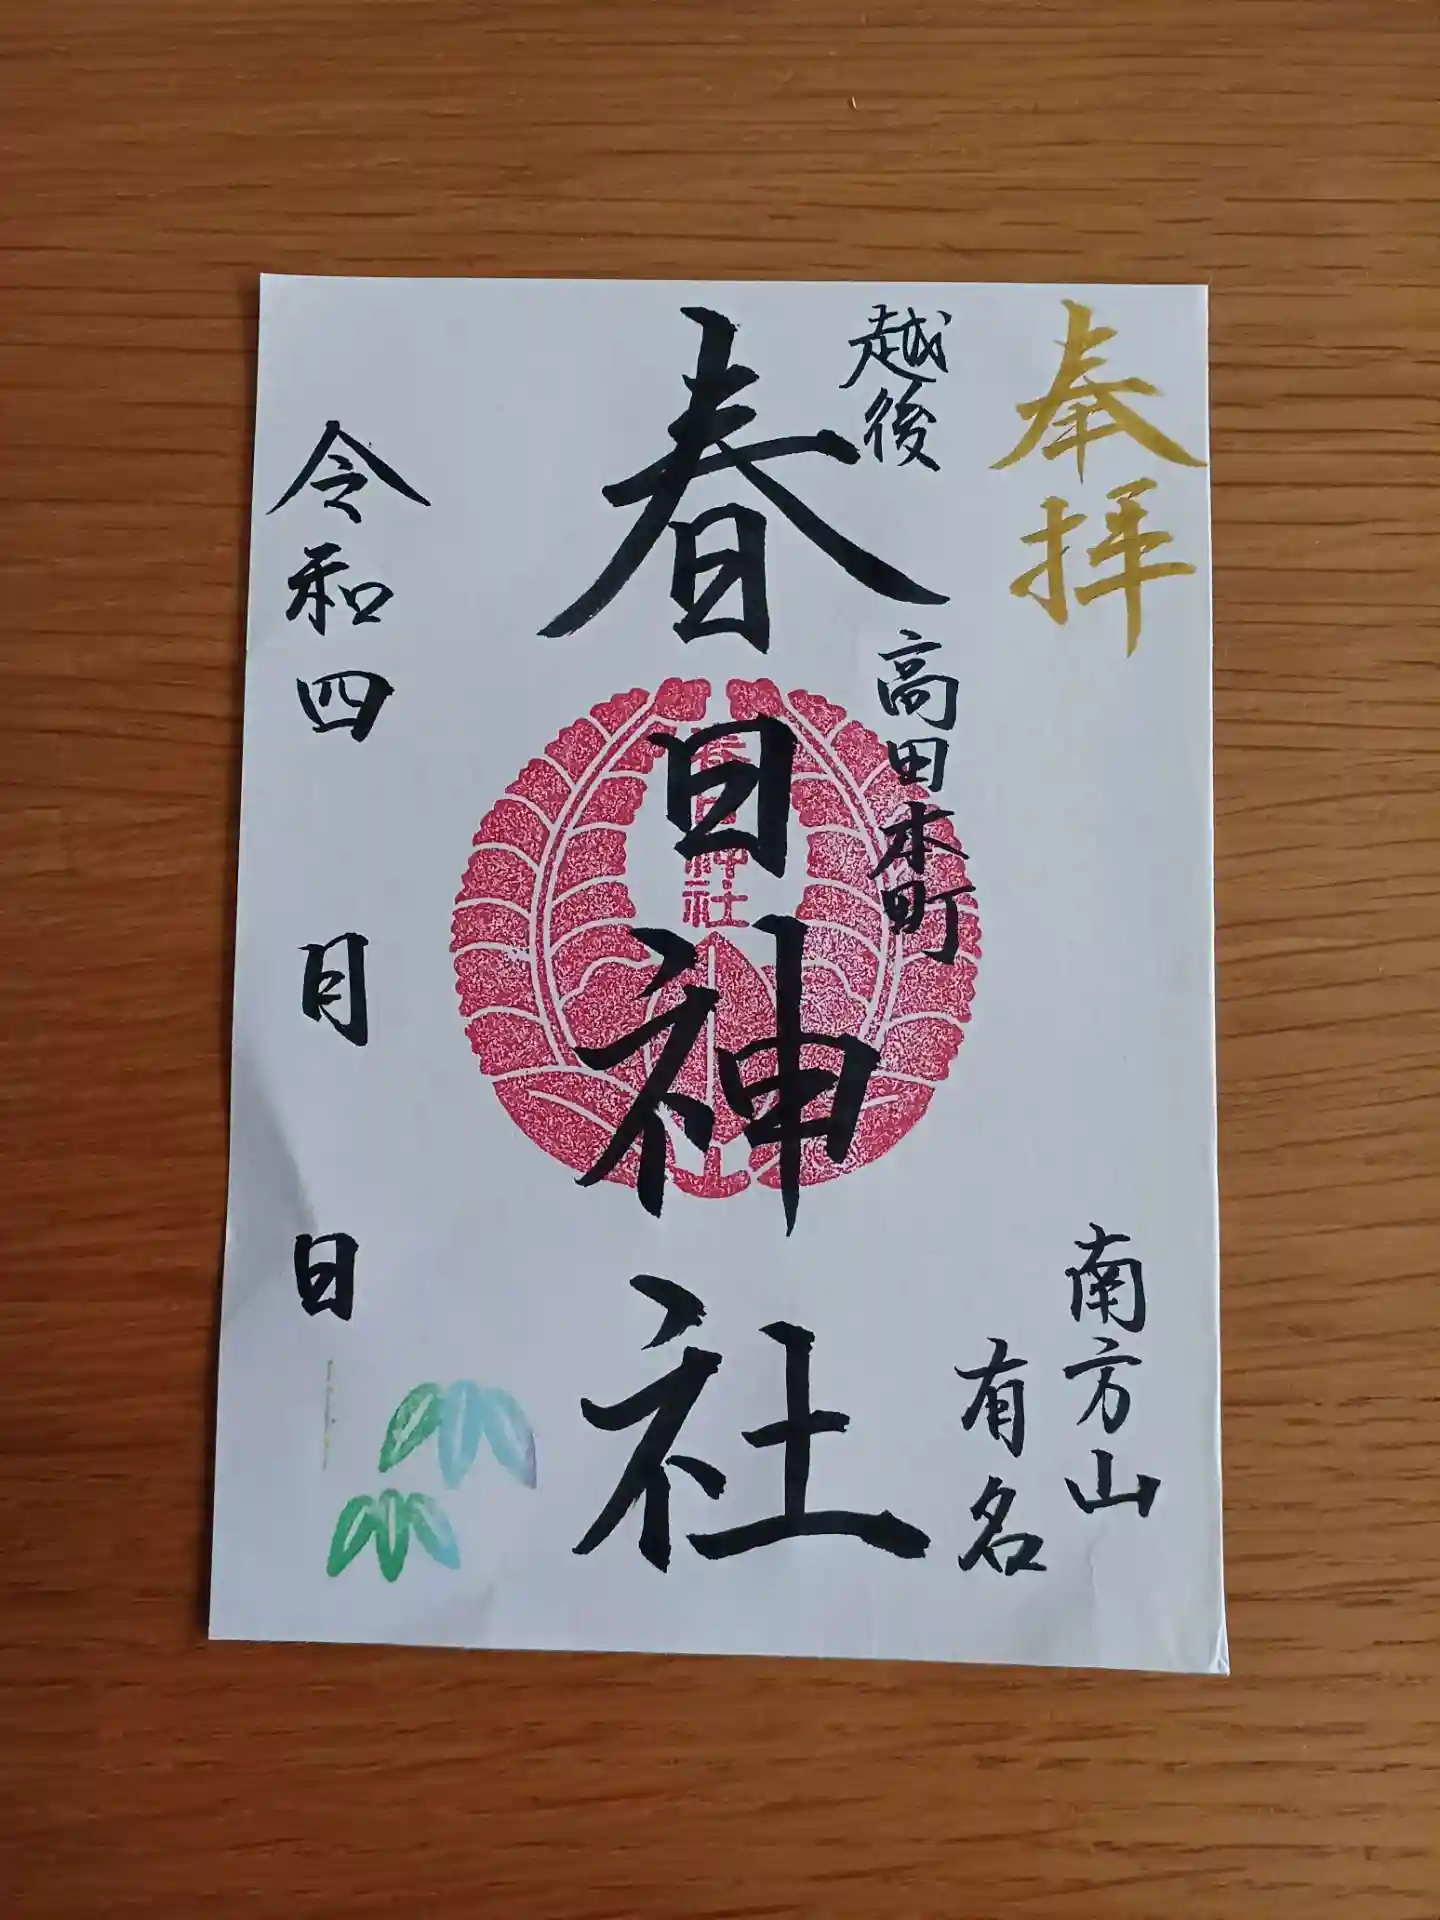 奉拝
南方山
有名
越後
高田本町
春日神社
春日神社
令和四 月 日